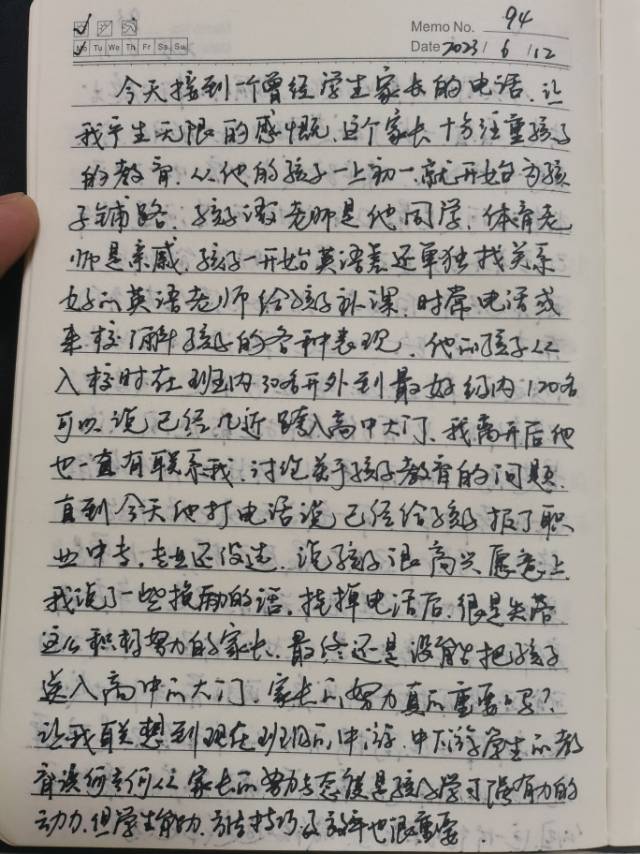 Memo No. 94
Mo Tu We Th Fr Sa Su
Date 2023 / 6 / 12
今天接到一个曾经学生家长的电话，让
我产生无限的感慨，这个家长十分注重孩子
的教育，从他的孩子一上初一就开始为孩
子铺路，孩子语老师是他同学，体育老
师是亲戚，孩子一开始英语差还单独找关系
好的英语老师给孩子补课，时常电话或
来校了解孩子的各种表现，他的孩子从
入校时在班内30名开外到最好级内120名
可以说已经几近踏入高中大门，我离开后他
也一直有联系我，讨论关于孩子教育的问题，
直到今天他打电话说已经给孩子报了职
业中专，专业还没选，说孩子很高兴愿意上，
我说了一些换励的话，挂掉电话后，很是失落，
这么积极努力的家长，最终还是没能把孩子
送入高中的大门，家长的努力真的重要吗？
让我联想到现在班内的中游、中下游学生的教
育该何去何从，家长的努力与态度是孩子学习强有力的
动力，但学生能力、方法技巧及效率也很重要。